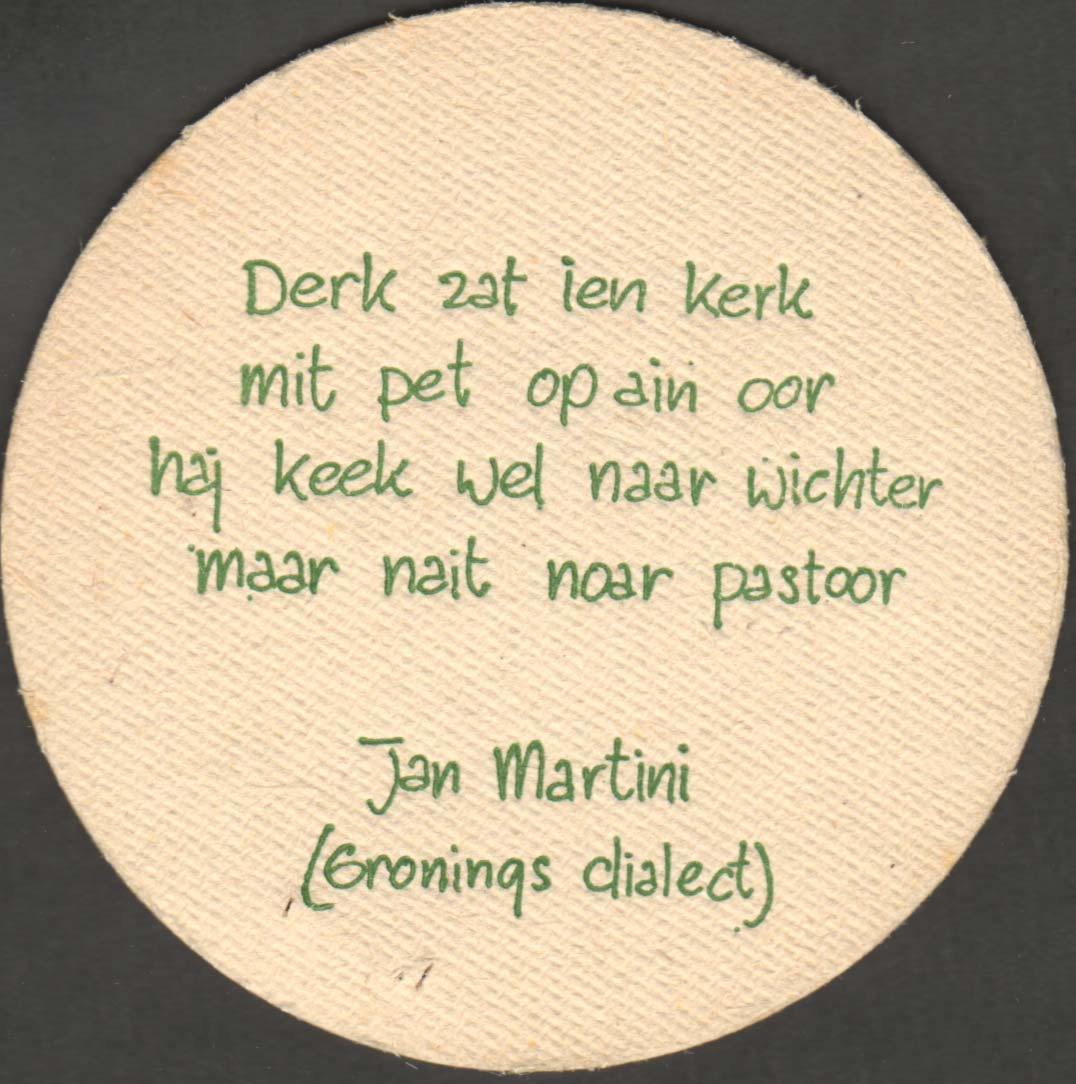 Derk zat ien kerk
mit pet op ain oor
haj keek wel naar wichter
maar nait noar pastoor
Jan Martini
(Gronings dialect)